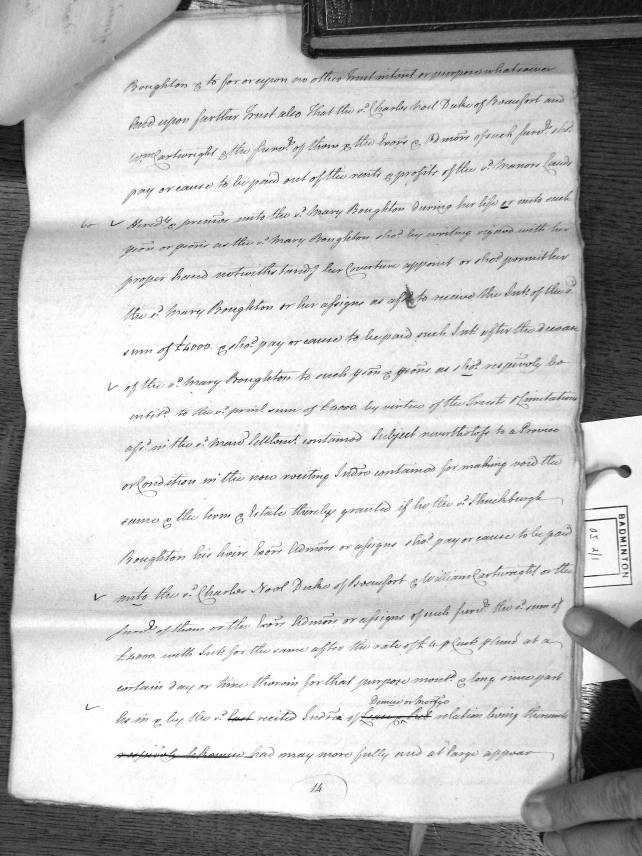 Boughton & to for or upon no other Trust intent or purpose whatsoever
And upon further Trust also That the sd. Charles Noel Duke of Beaufort and
Wm. Cartwright & the survr. of them & the Exors & Admors of such survr. shd.
pay or cause to be paid out of the rents & profits of the sd. Manors Lands
Heredts. & premes unto the sd. Mary Boughton during her life or unto such
pson or psons as the sd. Mary Boughton shod. by writing signed with her
proper hand notwithstandg her Coverture appoint or shod. permit her
the sd. Mary Boughton or her assigns as afsd. to receive the Intt. of the sd.
sum of £4000. & shod. pay or cause to be paid such Intt. after the decease
of the sd. Mary Boughton to such pson & psons as shod. respively be
intitd. to the sd. princl sum of £4000 by virtue of the Trusts & Limitations
afsd. in the sd. Marr. Settlemt. contained Subject nevertheless to a Proviso
or Condition in the now reciting Indre contained for making void the
same & the term & Estate thereby granted if he the sd. Shuckburgh
Boughton his heirs Exors Admors or assigns shod. pay or cause to be paid
unto the sd. Charles Noel Duke of Beaufort & William Cartwright or the
survr. of them or the Exors Admors or assigns of such survr. the sd. sum of
£4000 with Intt. for the same after the rate of £4 p Cent p Annd at a
certain day or time therein for that purpose mentd. & long since past
Demise or Mortge
As in & by the sd. last recited Indre of relation being thereunto
respively likewise had may more fully and at large appear
14
BADMINTON